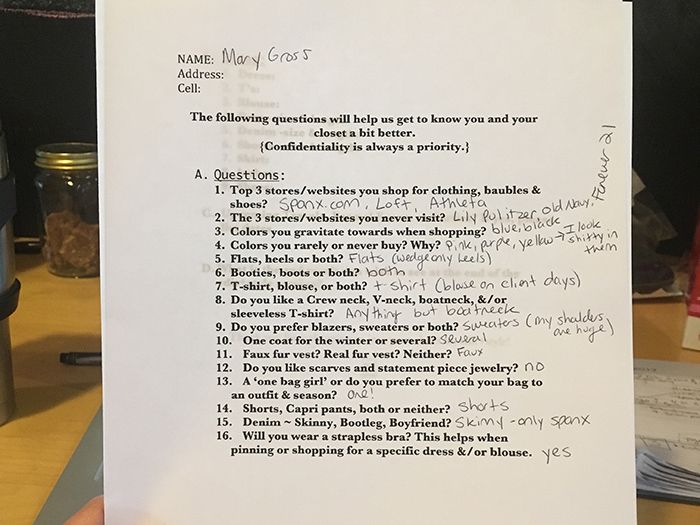 NAME: Mary Gross
Address:
Cell:
The following questions will help us get to know you and your
closet a bit better.
{Confidentiality is always a priority.}
A. Questions:
1. Top 3 stores/websites you shop for clothing, baubles &
shoes? Spanx.com, Loft, Athleta
2. The 3 stores/websites you never visit? Lily Pulitzer, Old Navy, Forever 21
3. Colors you gravitate towards when shopping? blue, black
4. Colors you rarely or never buy? Why? Pink, purple, yellow → I look shitty in them
5. Flats, heels or both? Flats (wedge only heels)
6. Booties, boots or both? both
7. T-shirt, blouse, or both? t-shirt (blouse on client days)
8. Do you like a Crew neck, V-neck, boatneck, &/or
sleeveless T-shirt? Anything but boatneck
9. Do you prefer blazers, sweaters or both? sweaters (my shoulders are huge)
10. One coat for the winter or several? several
11. Faux fur vest? Real fur vest? Neither? Faux
12. Do you like scarves and statement piece jewelry? no
13. A 'one bag girl' or do you prefer to match your bag to
an outfit & season? One!
14. Shorts, Capri pants, both or neither? shorts
15. Denim ~ Skinny, Bootleg, Boyfriend? Skinny - only spanx
16. Will you wear a strapless bra? This helps when
pinning or shopping for a specific dress &/or blouse. yes